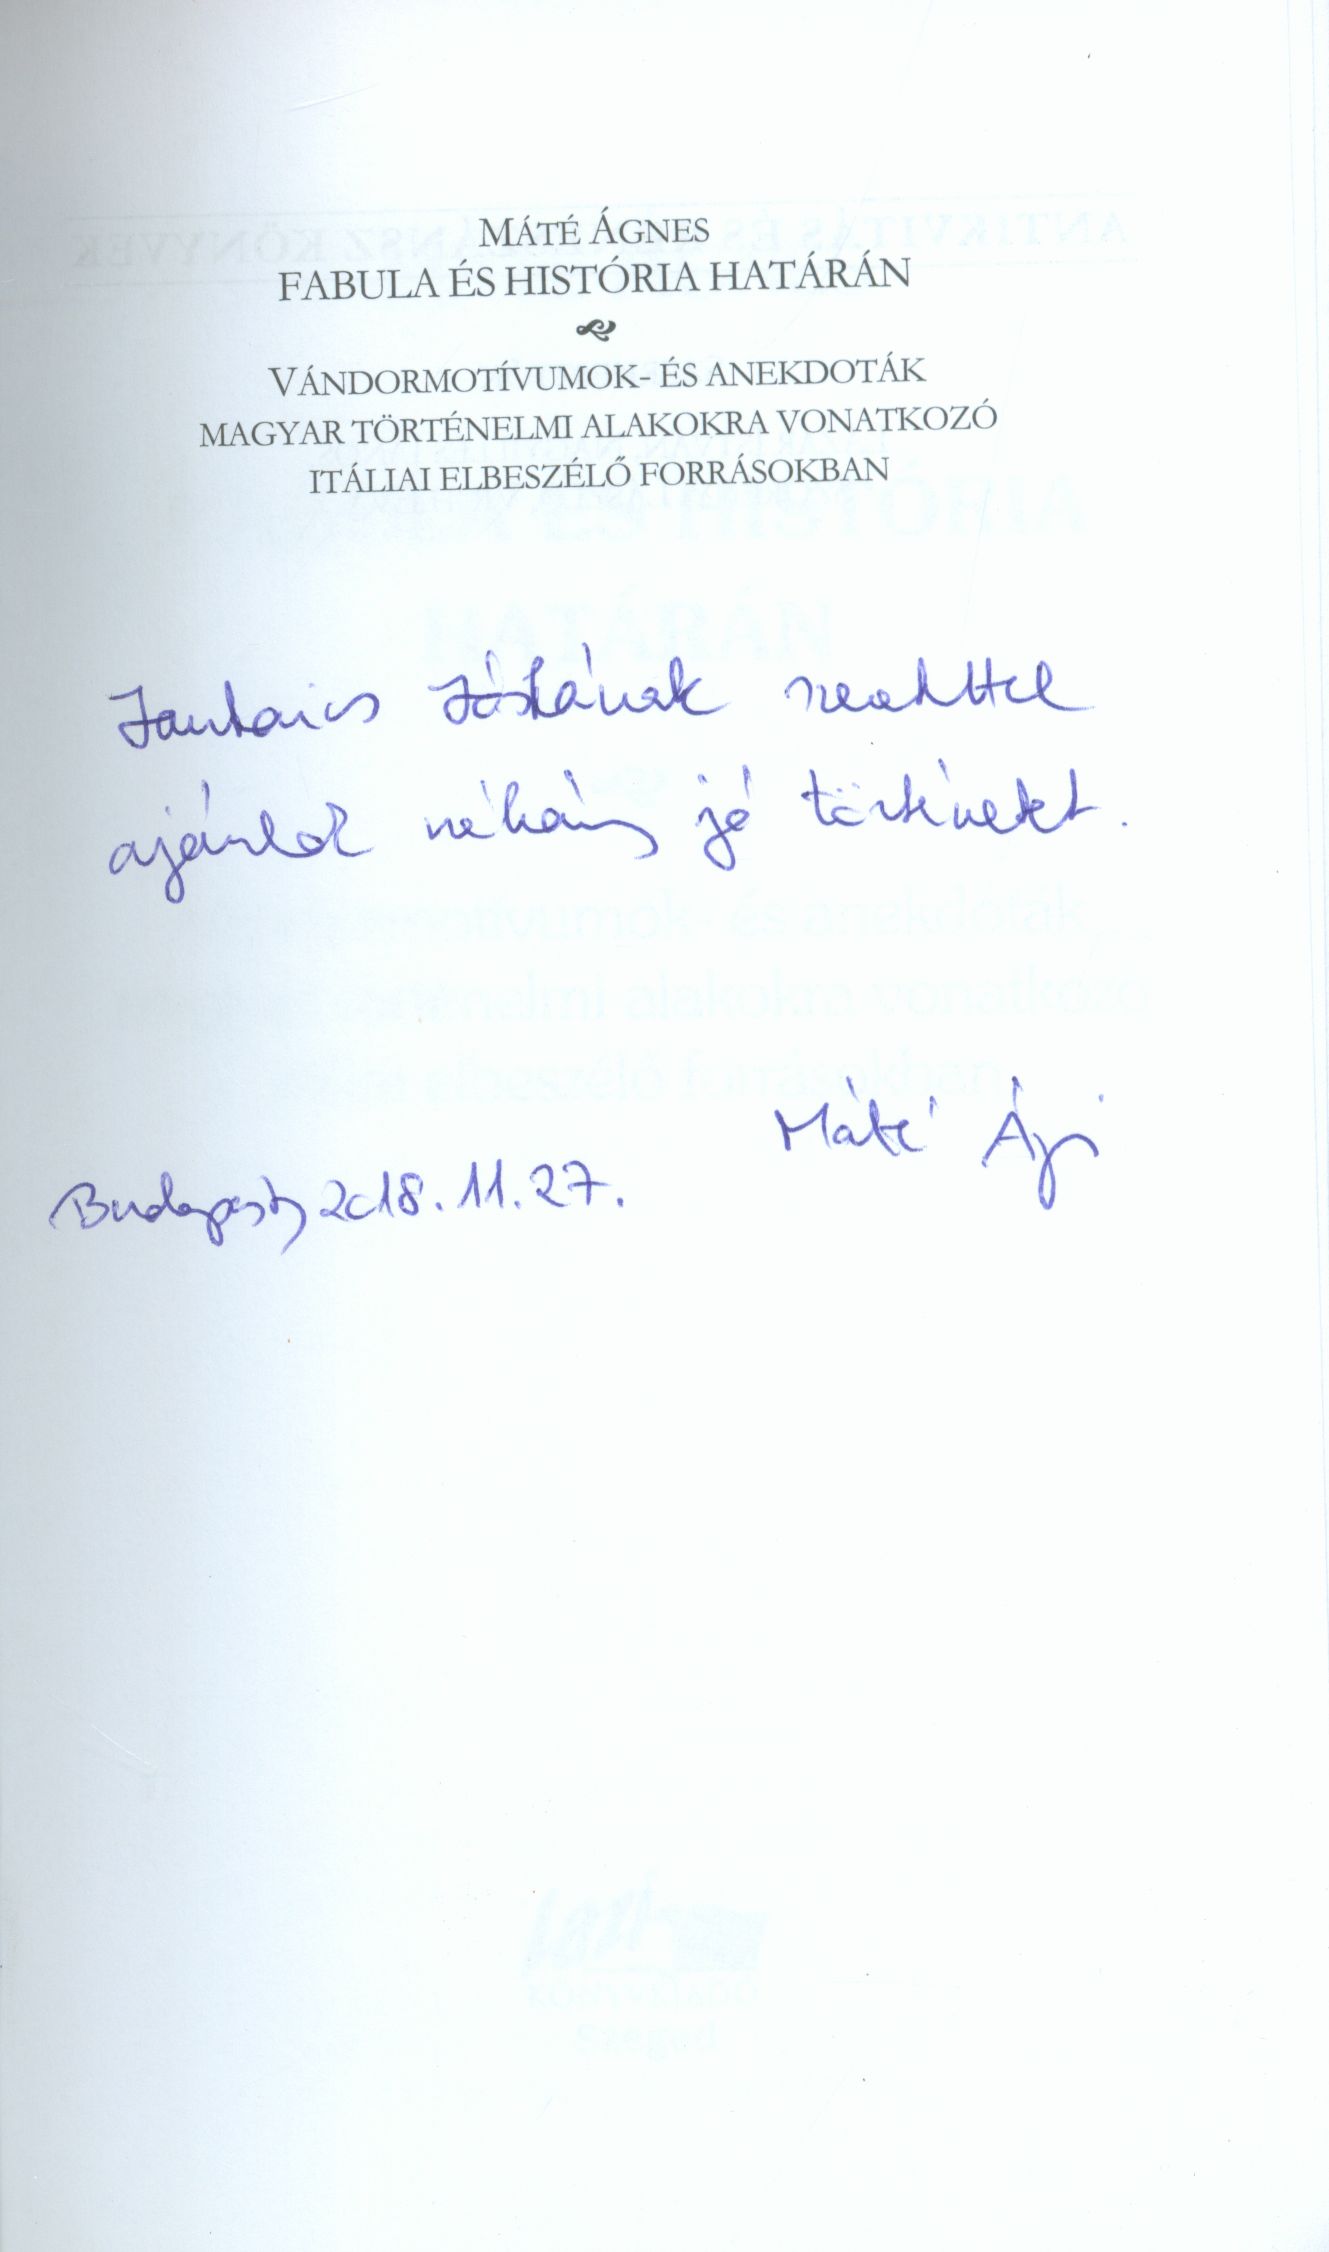 MÁTÉ ÁGNES
FABULA ÉS HISTÓRIA HATÁRÁN
VÁNDORMOTÍVUMOK- ÉS ANEKDOTÁK
MAGYAR TÖRTÉNELMI ALAKOKRA VONATKOZÓ
ITÁLIAI ELBESZÉLŐ FORRÁSOKBAN
Jankovics Jóskának szeretettel
ajánlok néhány jó történetet.
Máté Ági
Budapest, 2018. 11. 27.